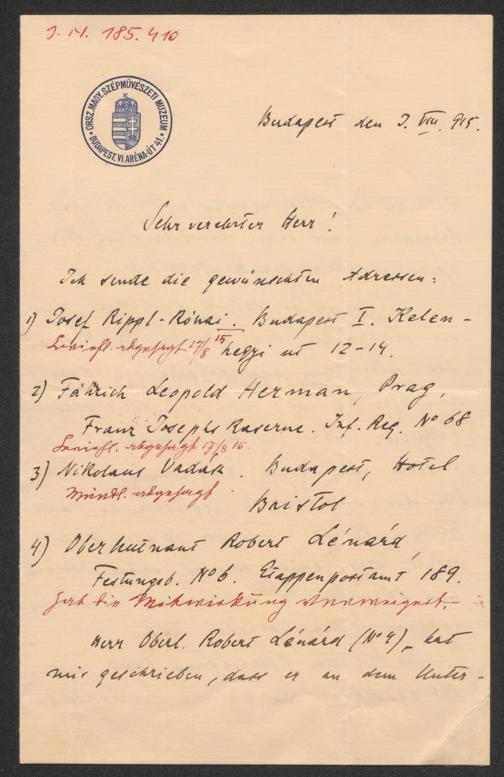 J. N. 185.410
ORSZ. MAGY. SZÉPMŰVÉSZETI MUZEUM
BUDAPEST, VI. ARÉNA-ÚT 41.
Budapest den 9. VIII. 915.
Sehr verehrter Herr!
Ich sende die gewünschten Adressen:
1) Josef Rippl-Rónai. Budapest I. Kelen-
hegyi ut 12-14.
abgesagt 17/8 15
2) Leopold Herman, Prag,
Franz Josephs Kaserne. Inf. Reg. No 68
abgesagt 17/8 15.
3) Nikolaus Vadász. Budapest, Hotel
Bristol
mündl. abgesagt
4) Oberleutnant Robert Lénárd,
Festungsb. No 6. Etappenpostamt 189.
hat die Mitwirkung verweigert.
Herr Oberl. Robert Lénárd (No 4), hat
mir geschrieben, dass er an dem Unter-